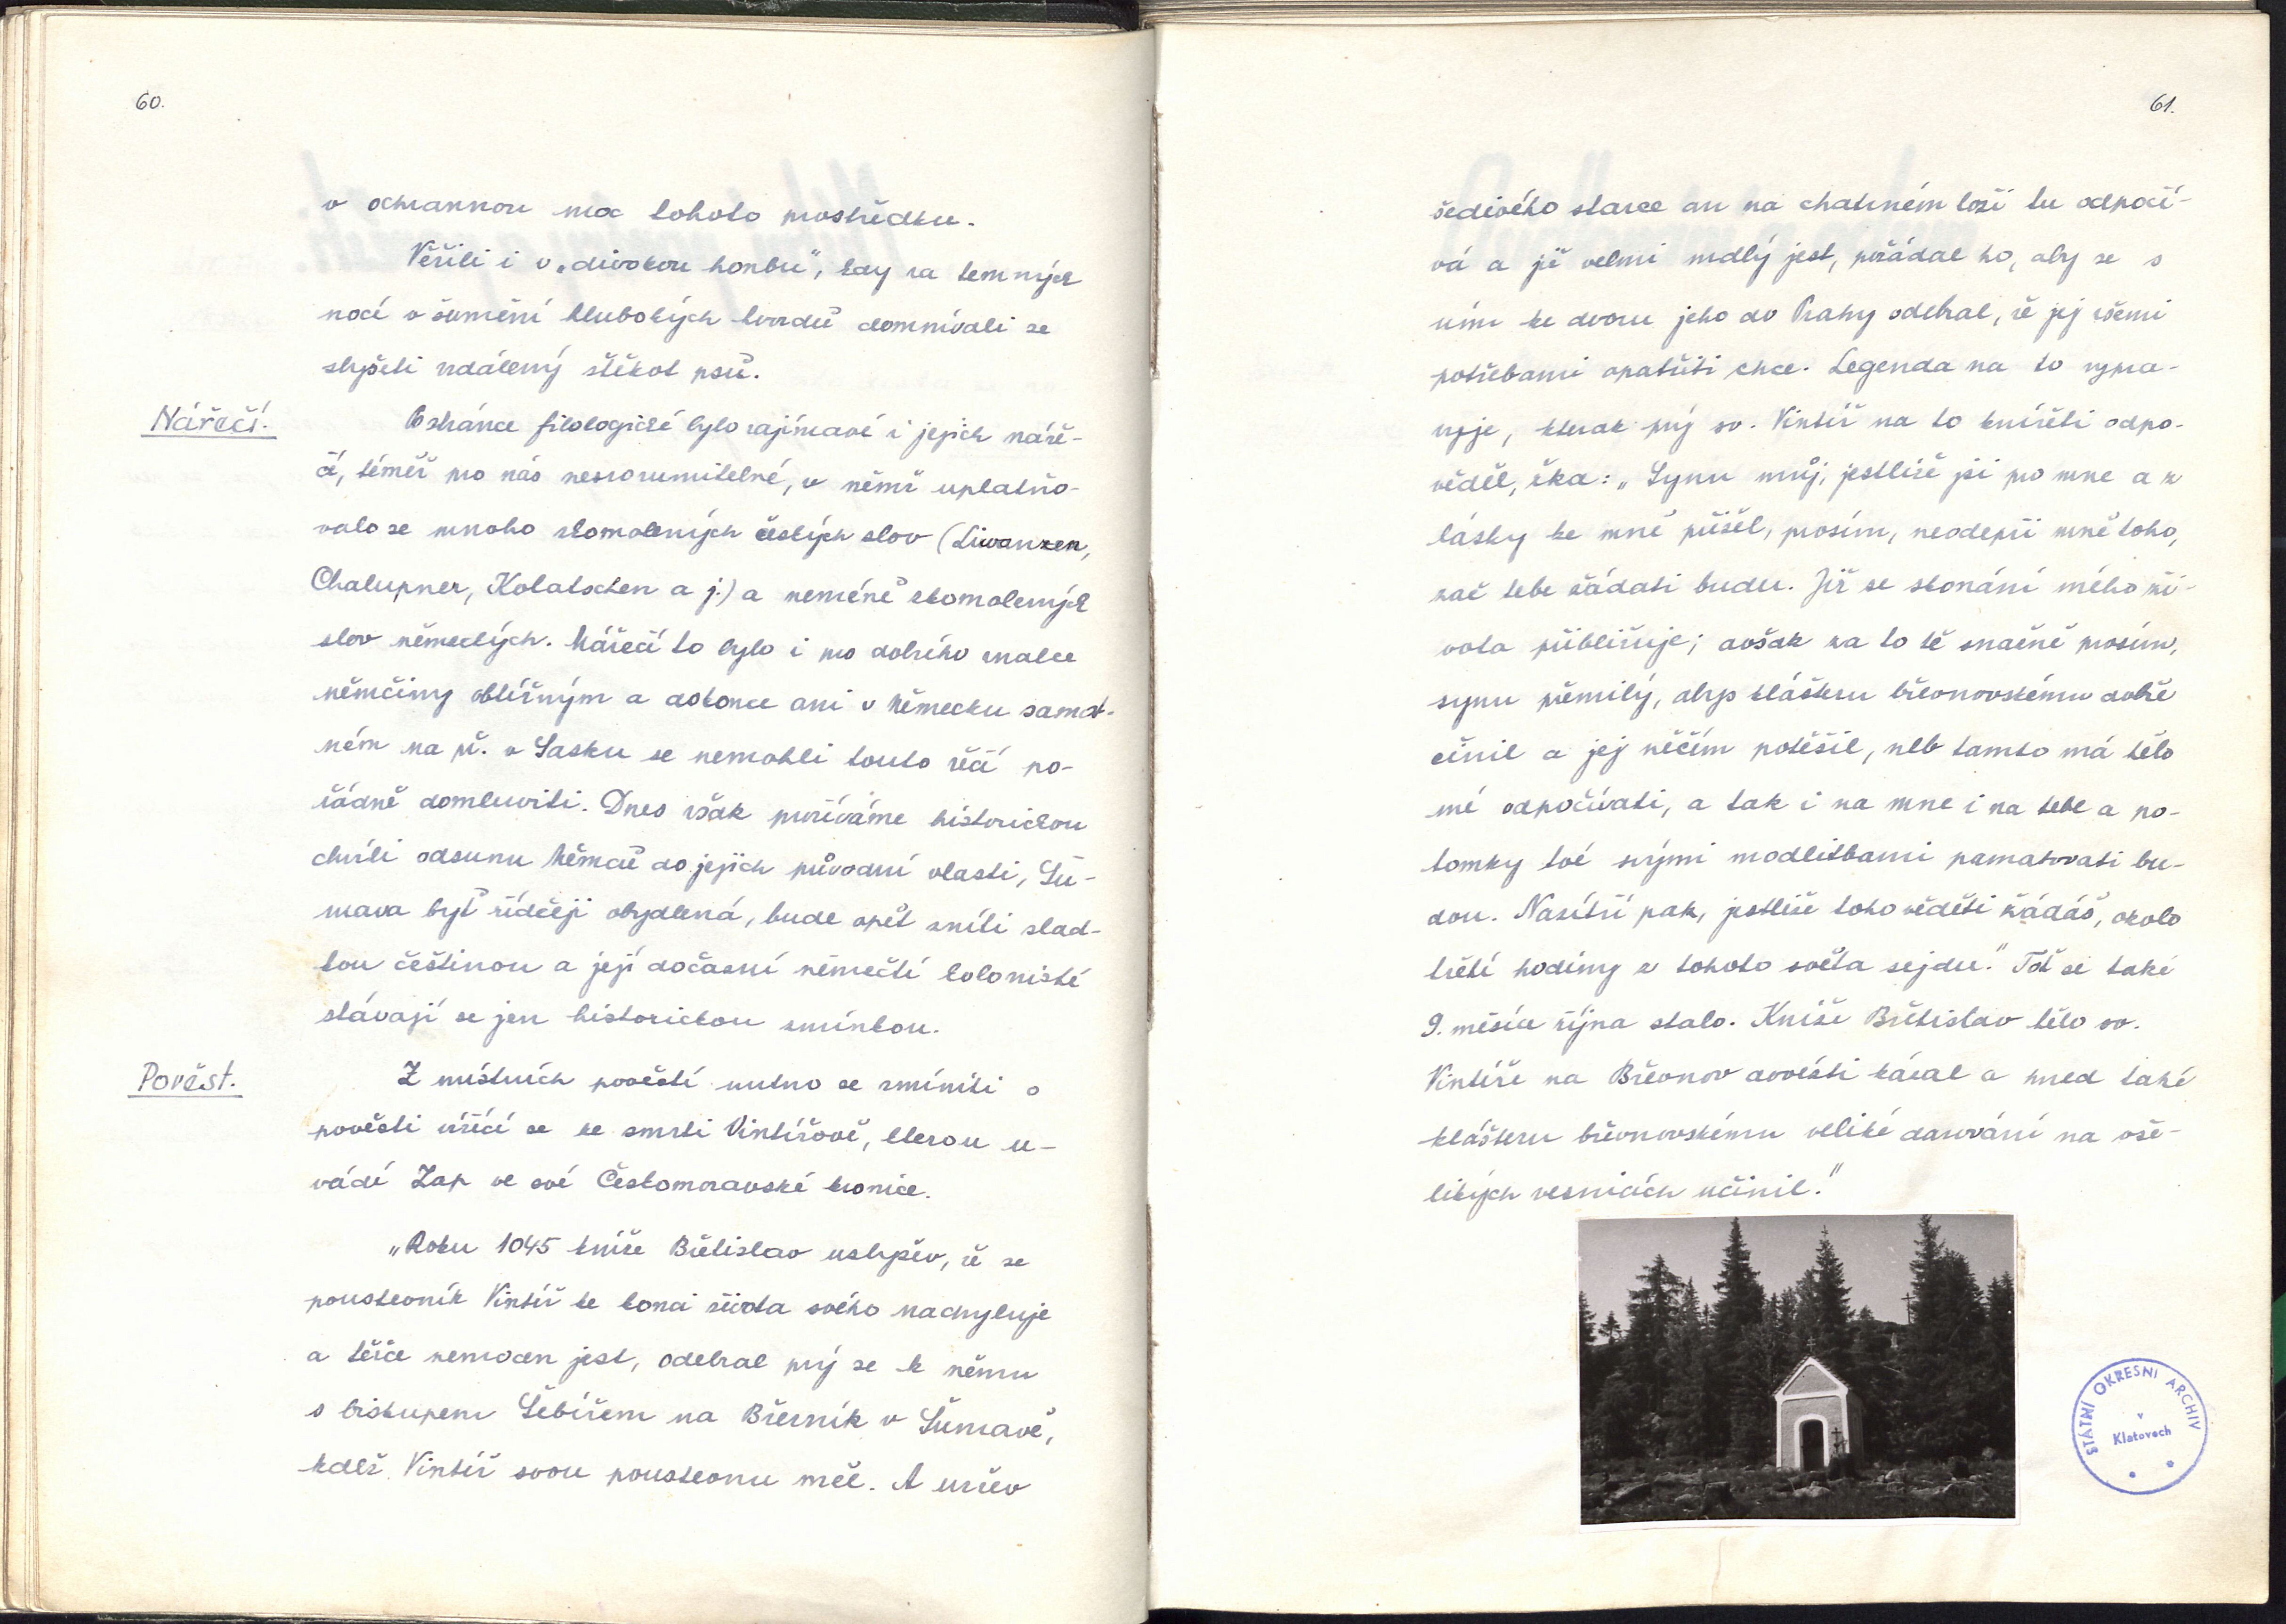 60.
v ochrannou moc tohoto prostředku.
Věřili i v „divokou honbu", kdy za temných
nocí v šumění hlubokých hvozdů domnívali se
slyšeti vzdálený štěkot psů.
Nářečí.
Po stránce filologické bylo zajímavé i jejich náře-
čí, téměř pro nás nesrozumitelné, v němž uplatňo-
valo se mnoho zkomolených českých slov (Liwanzen,
Chalupner, Kolatschen a j.) a neméně zkomolených
slov německých. Nářečí to bylo i pro dobrého znalce
němčiny obtížným a dokonce ani v Německu samot-
ném na př. v Sasku se nemohli touto řečí po-
řádně domluviti. Dnes však prožíváme historickou
chvíli odsunu Němců do jejich původní vlasti, Šu-
mava byť řidčeji obydlená, bude opět zníti slad-
kou češtinou a její dočasní němečtí kolonisté
stávají se jen historickou zmínkou.
Pověst.
Z místních pověstí nutno se zmíniti o
pověsti vížící se ke smrti Vintířově, kterou u-
vádí Zap ve své Českomoravské kronice.
„Roku 1045 kníže Břetislav uslyšev, že se
poustevník Vintíř ke konci života svého nachyluje
a těžce nemocen jest, odebral prý se k němu
s biskupem Šebířem na Březník v Šumavě,
kdež Vintíř svou poustevnu měl. A uzřev
61.
šedivého starce an na chatrném loži tu odpočí-
vá a již velmi mdlý jest, požádal ho, aby se s
ním ke dvoru jeho do Prahy odebral, že jej všemi
potřebami opatřiti chce. Legenda na to vypra-
vuje, kterak prý sv. Vintíř na to knížeti odpo-
věděl, řka: „Synu můj, jestliže jsi pro mne a z
lásky ke mně přišel, prosím, neodepři mně toho,
zač tebe žádati budu. Již se skonání mého ži-
vota přibližuje; avšak za to tě snažně prosím,
synu přemilý, abys klášteru břevnovskému dobře
činil a jej něčím potěšil, neb tamto má tělo
mé odpočívati, a tak i na mne i na tebe a po-
tomky tvé svými modlitbami pamatovati bu-
dou. Nazítří pak, jestliže toho věděti žádáš, okolo
třetí hodiny z tohoto světa sejdu." Též se také
9. měsíce října stalo. Kníže Břetislav tělo sv.
Vintíře na Břevnov dovézti kázal a hned také
klášteru břevnovskému veliké darování na vše-
likých vesnicích učinil."
STÁTNÍ OKRESNÍ ARCHIV
v
Klatovech